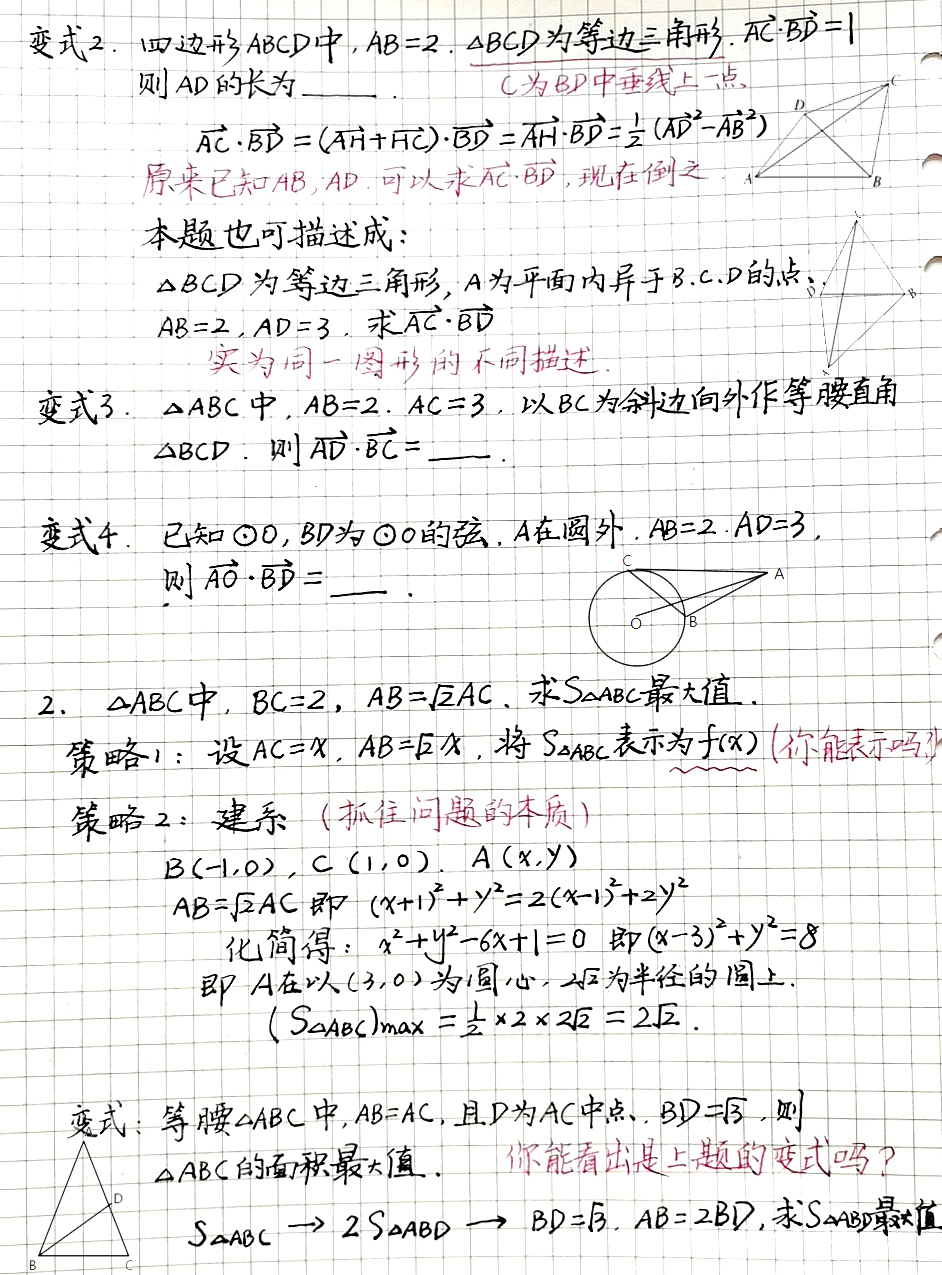 变式2. 四边形ABCD中, AB=2. △BCD为等边三角形. $\overrightarrow{AC}\cdot\overrightarrow{BD}=1$
则AD的长为______.
C为BD中垂线上一点
$\overrightarrow{AC}\cdot\overrightarrow{BD}=(\overrightarrow{AH}+\overrightarrow{HC})\cdot\overrightarrow{BD}=\overrightarrow{AH}\cdot\overrightarrow{BD}=\frac{1}{2}(\overrightarrow{AD}^2-\overrightarrow{AB}^2)$
原来已知AB, AD. 可以求$\overrightarrow{AC}\cdot\overrightarrow{BD}$, 现在倒之
C
D
A
B
本题也可描述成:
△BCD为等边三角形, A为平面内异于B.C.D的点、
AB=2, AD=3. 求$\overrightarrow{AC}\cdot\overrightarrow{BD}$
实为同一图形的不同描述.
D
B
变式3. △ABC中, AB=2. AC=3. 以BC为斜边向外作等腰直角
△BCD. 则$\overrightarrow{AD}\cdot\overrightarrow{BC}$=____.
变式4. 已知⊙O, BD为⊙O的弦. A在圆外. AB=2. AD=3,
则$\overrightarrow{AO}\cdot\overrightarrow{BD}$=____.
C
A
O
B
2. △ABC中, BC=2, AB=√2AC. 求S△ABC最大值.
策略1: 设AC=x, AB=√2x, 将S△ABC表示为f(x) (你能表示吗?)
策略2: 建系 (抓住问题的本质)
B(-1,0), C(1,0). A(x,y)
AB=√2AC 即 (x+1)²+y²=2(x-1)²+2y²
化简得: x²+y²-6x+1=0 即(x-3)²+y²=8
即 A在以(3,0)为圆心, 2√2为半径的圆上.
(S△ABC)max = ½×2×2√2 = 2√2.
变式: 等腰△ABC中, AB=AC, 且D为AC中点、BD=√3, 则
△ABC的面积最大值. 你能看出是上题的变式吗?
S△ABC → 2S△ABD → BD=√3. AB=2BD, 求S△ABD最大值
D
B
C